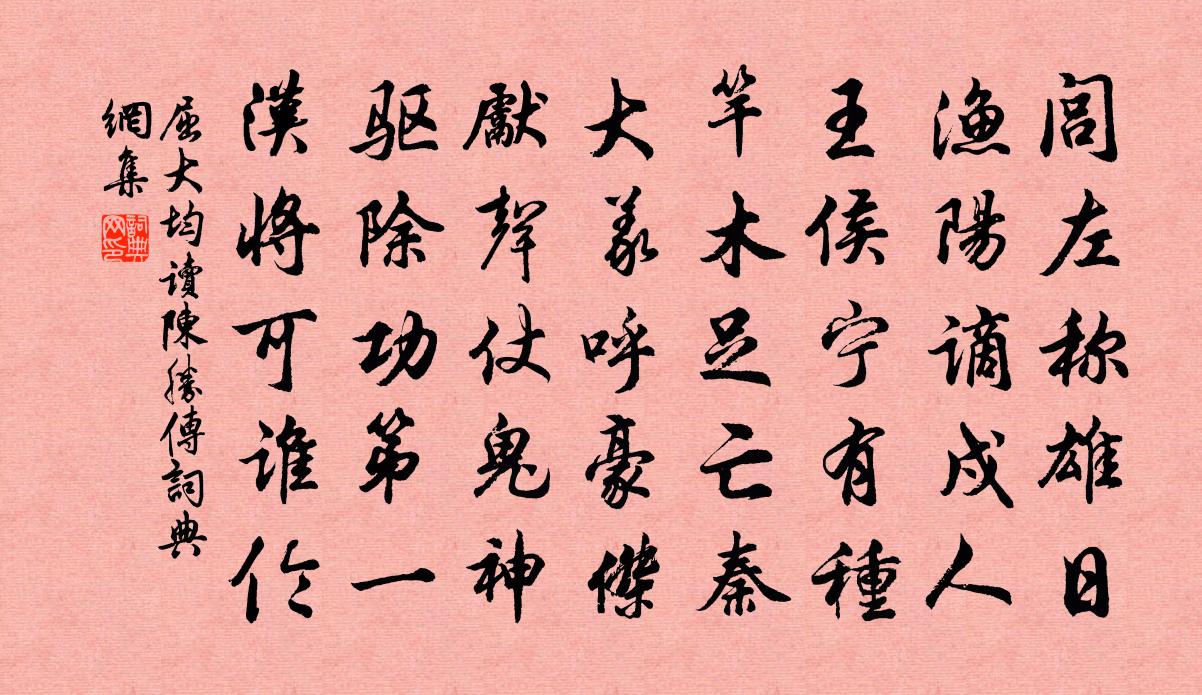 閭左称雄日
渔陽謫戍人
王侯宁有種
竿木足亡秦
大義呼豪傑
獻聲仗鬼神
驱除功第一
漢將可誰伦
屈大均讀陳勝傳詞典
網集
詞典网印